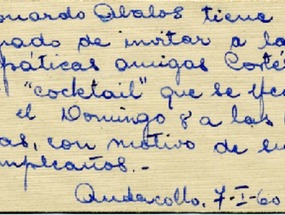 onardo Abalos tiene
rado de invitar a la
páticas amigas Corté
"cocktail" que se efec
el Domingo 8 a las
as, con motivo de su
mpleaños.-
Andacollo, 7-I-60